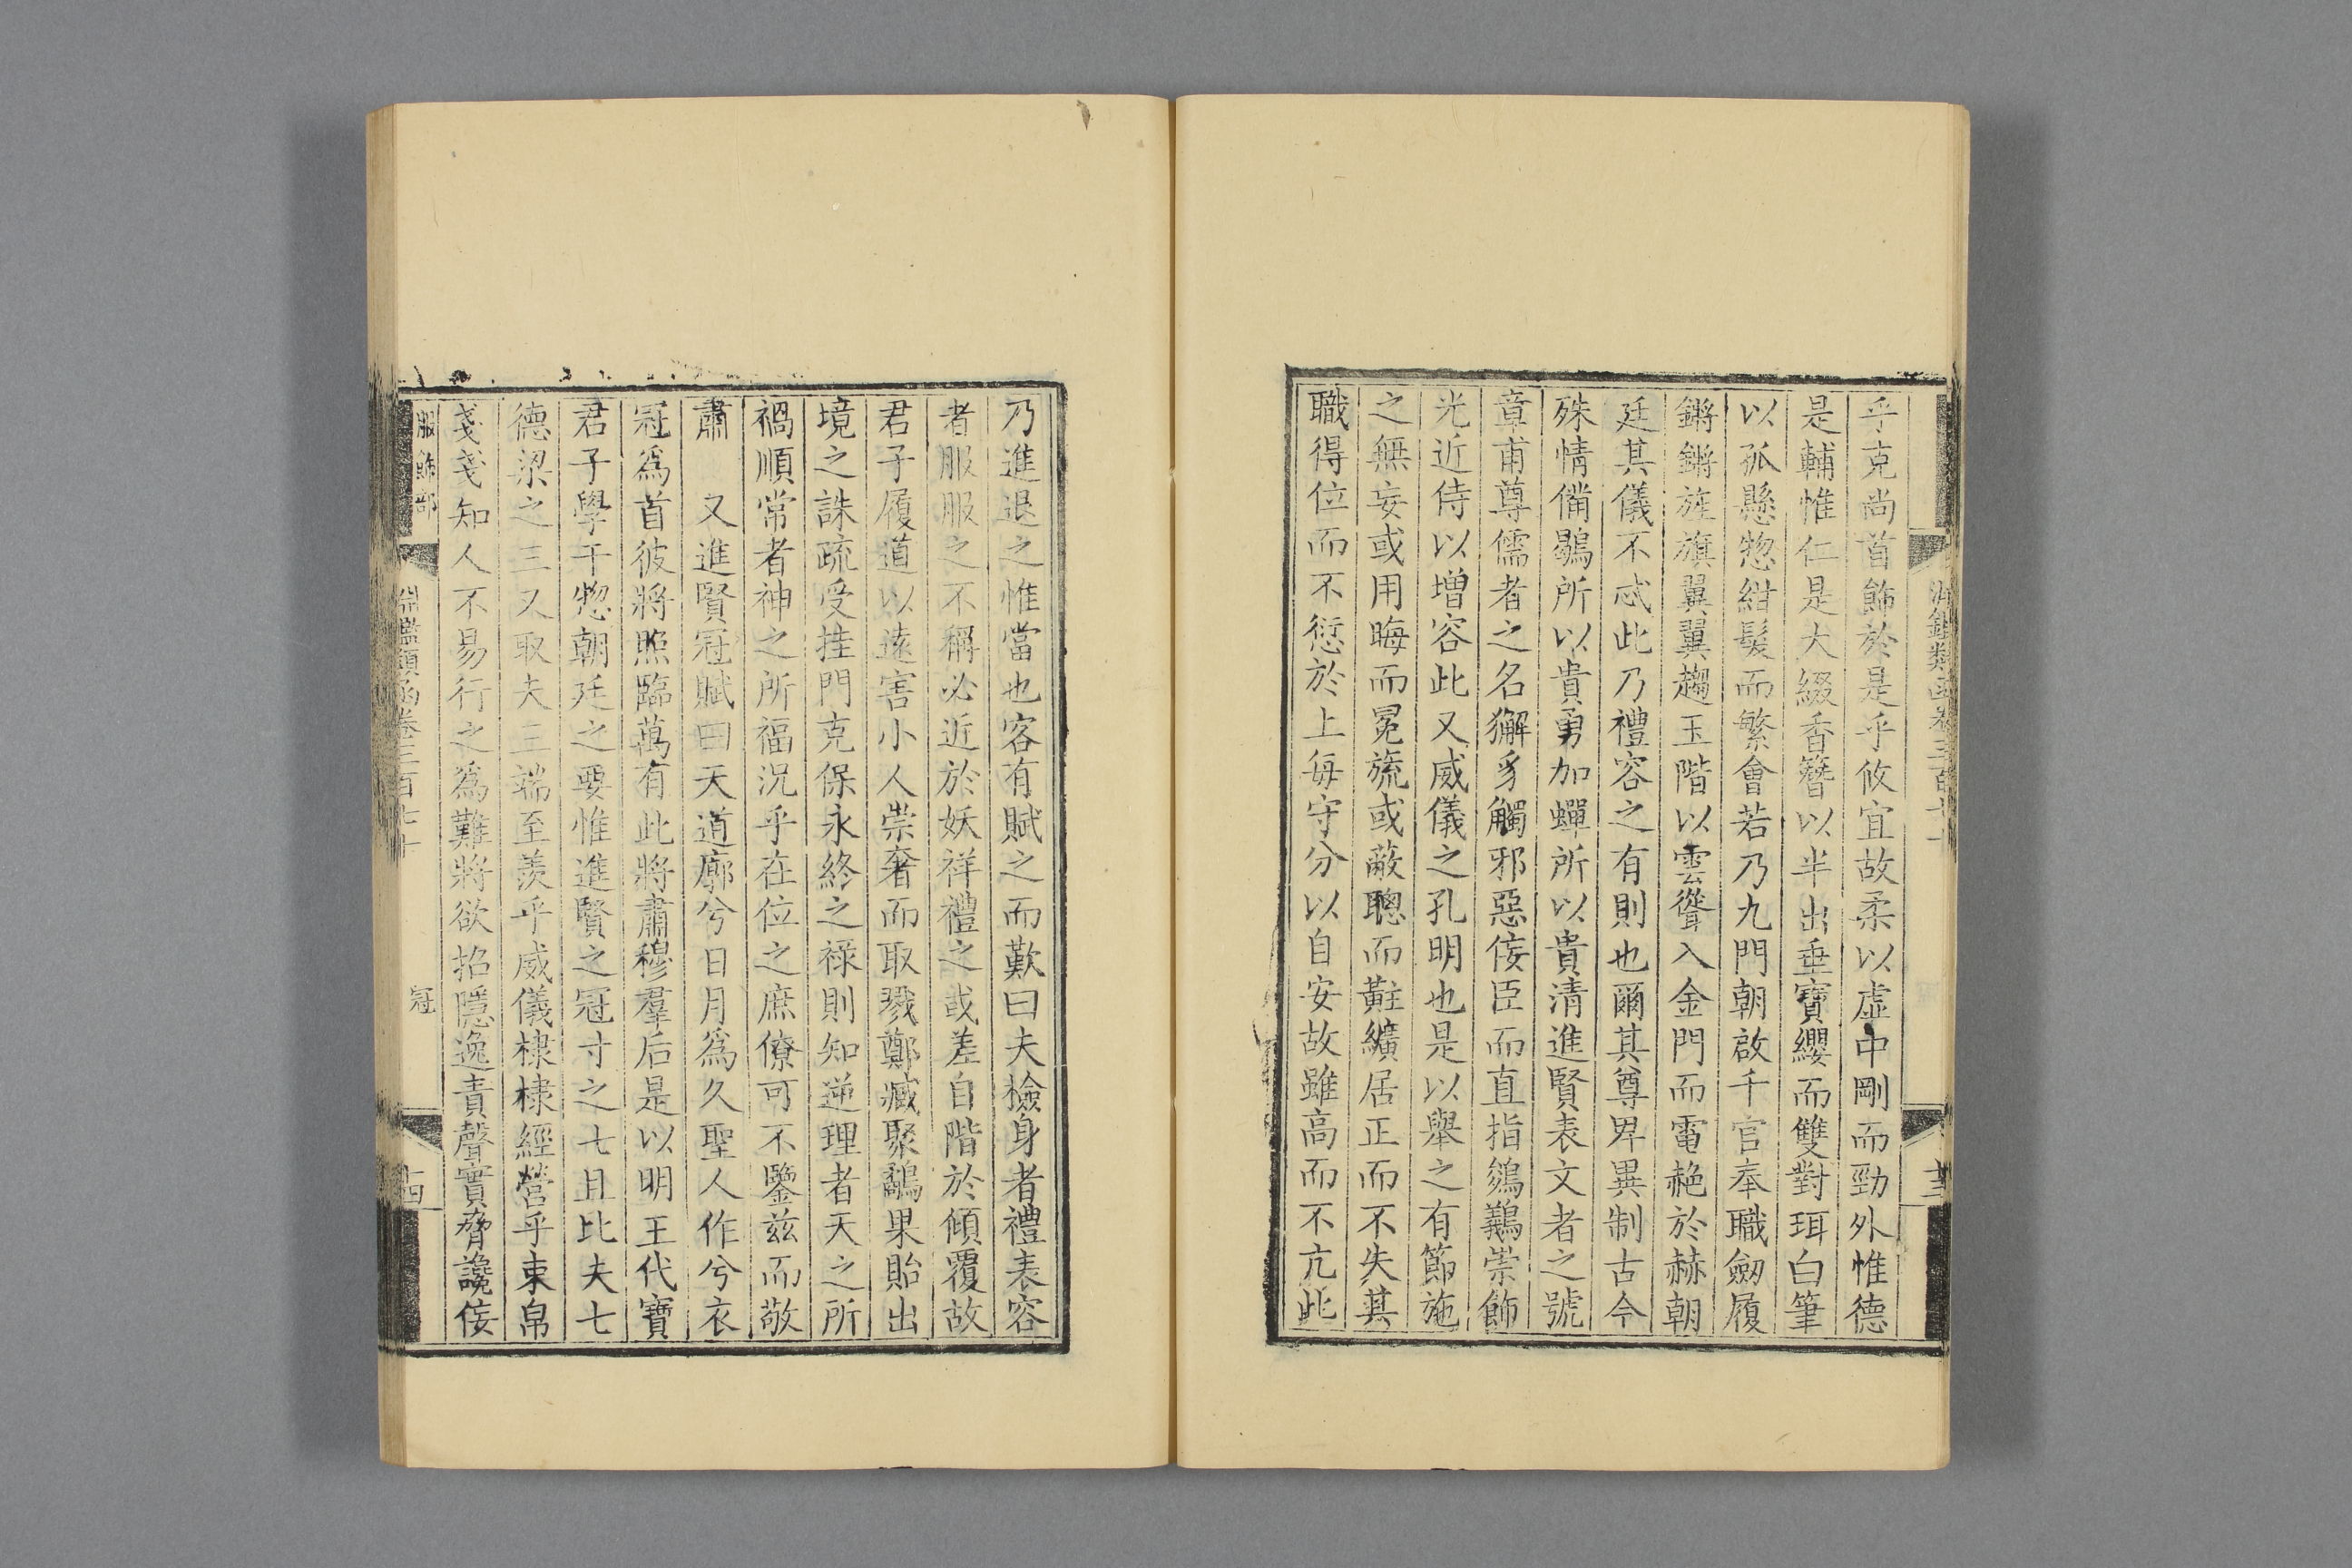 乎克尚首飾於是乎攸宜故柔以虛中剛而勁外惟德
是輔惟仁是大綴香簪以半出垂寶纓而雙對珥白筆
以孤懸惣紺髮而繁會若乃九門朝啟千官奉職劒履
鏘鏘旌旗翼翼趨玉階以雲聳入金門而電赩於赫朝
廷其儀不忒此乃禮容之有則也爾其尊卑異制古今
殊情備鶡所以貴勇加蟬所以貴清進賢表文者之號
章甫尊儒者之名獬豸觸邪惡佞臣而直指鵕鸃崇飾
光近侍以增容此又威儀之孔明也是以舉之有節施
之無妄或用晦而冕旒或蔽聰而黈纊居正而不失其
職得位而不愆於上每守分以自安故雖高而不亢此
乃進退之惟當也客有賦之而歎曰夫檢身者禮表容
者服服之不稱必近於妖祥禮之或差自階於傾覆故
君子履道以遠害小人崇奢而取戮鄭臧聚鷸果貽出
境之誅疏受挂門克保永終之祿則知逆理者天之所
禍順常者神之所福況乎在位之庶僚可不鑒兹而敬
肅　又進賢冠賦曰天道廓兮日月爲久聖人作兮衣
冠爲首彼將照臨萬有此將肅穆羣后是以明王代寶
君子學干惣朝廷之要惟進賢之冠寸之七且比夫七
德梁之三又取夫三端至羨乎威儀棣棣經營乎束帛
戔戔知人不易行之爲難將欲招隱逸責聲實脅讒佞
服飾部
淵鑑類函卷三百七十
冠
十四